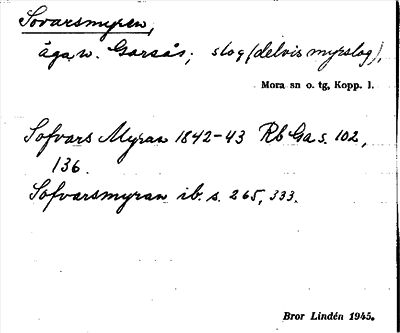 Sovarsmyren,
äga, n. Garsås; slog (delvis myrslog),
Mora sn o. tg, Kopp. l.
Sofvars Myran 1842-43 Rb Ga s. 102,
136.
Sofvarsmyran ib. s. 265, 333.
Bror Lindén 1945.